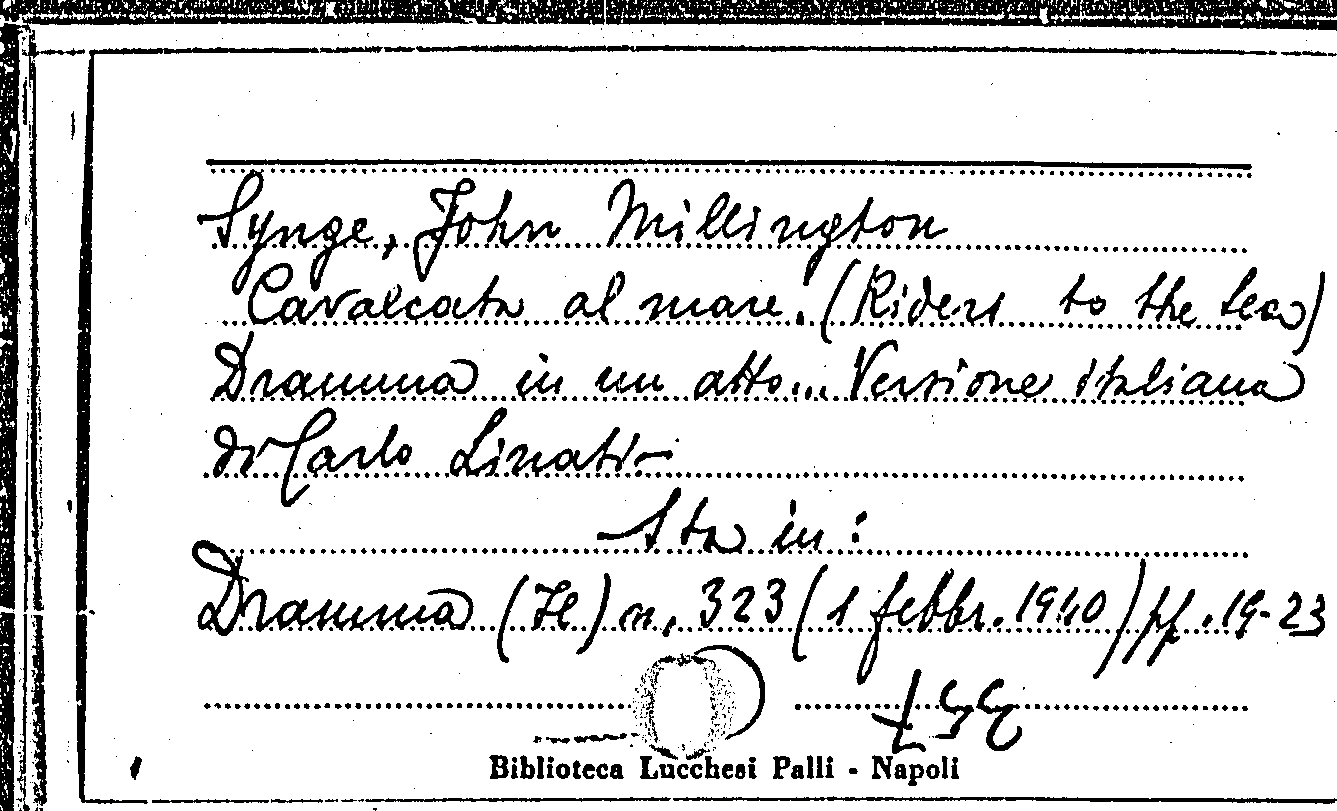 Synge, John Millington
Cavalcata al mare. (Riders to the Sea)
Dramma in un atto... Versione italiana
di Carlo Linati
Sta in:
Dramma (Il) n. 323 (1 febbr. 1940) pp. 19-23
Biblioteca Lucchesi Palli - Napoli